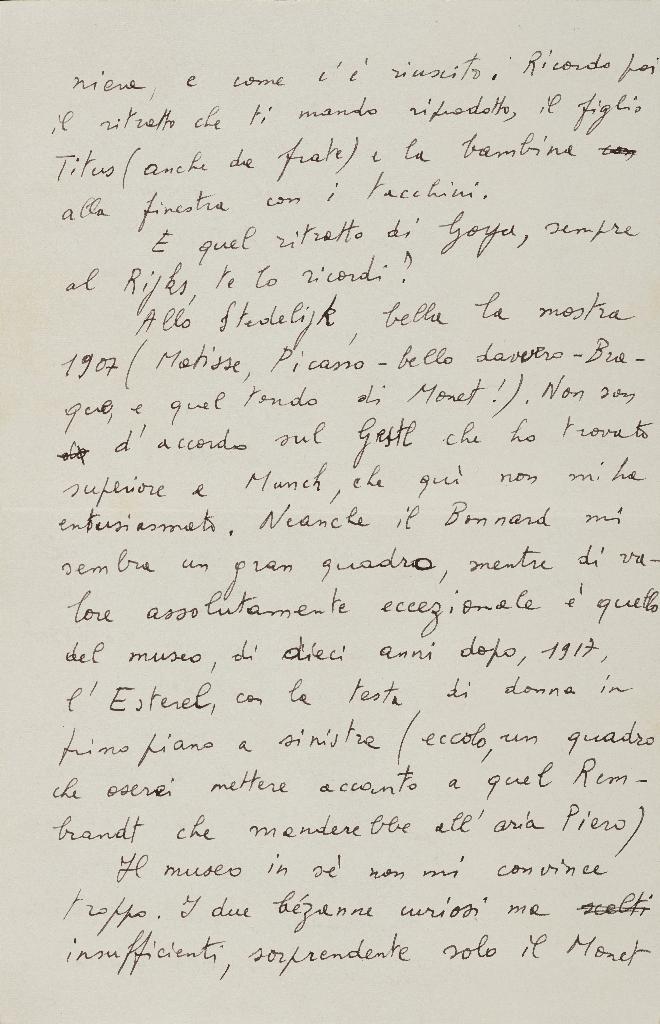 niera, e come c'è riuscito. Ricordo poi
il ritratto che ti mando riprodotto, il figlio
Titus (anche da frate) e la bambina con
alla finestra con i tacchini.
E quel ritratto di Goya, sempre
al Rijks, te lo ricordi?
Allo Stedelijk, bella la mostra
1907 (Matisse, Picasso - bello davvero - Bra-
que, e quel tondo di Monet!). Non son
d'accordo sul Gerstl che ho trovato
superiore a Munch, che quì non mi ha
entusiasmato. Neanche il Bonnard mi
sembra un gran quadro, mentre di va-
lore assolutamente eccezionale è quello
del museo, di dieci anni dopo, 1917,
l'Esterel, con la testa di donna in
primo piano a sinistra (eccolo, un quadro
che oserei mettere accanto a quel Rem-
brandt che manderebbe all'aria Piero)
Il museo in sé non mi convince
troppo. I due Cézanne curiosi ma scelti
insufficienti, sorprendente solo il Monet